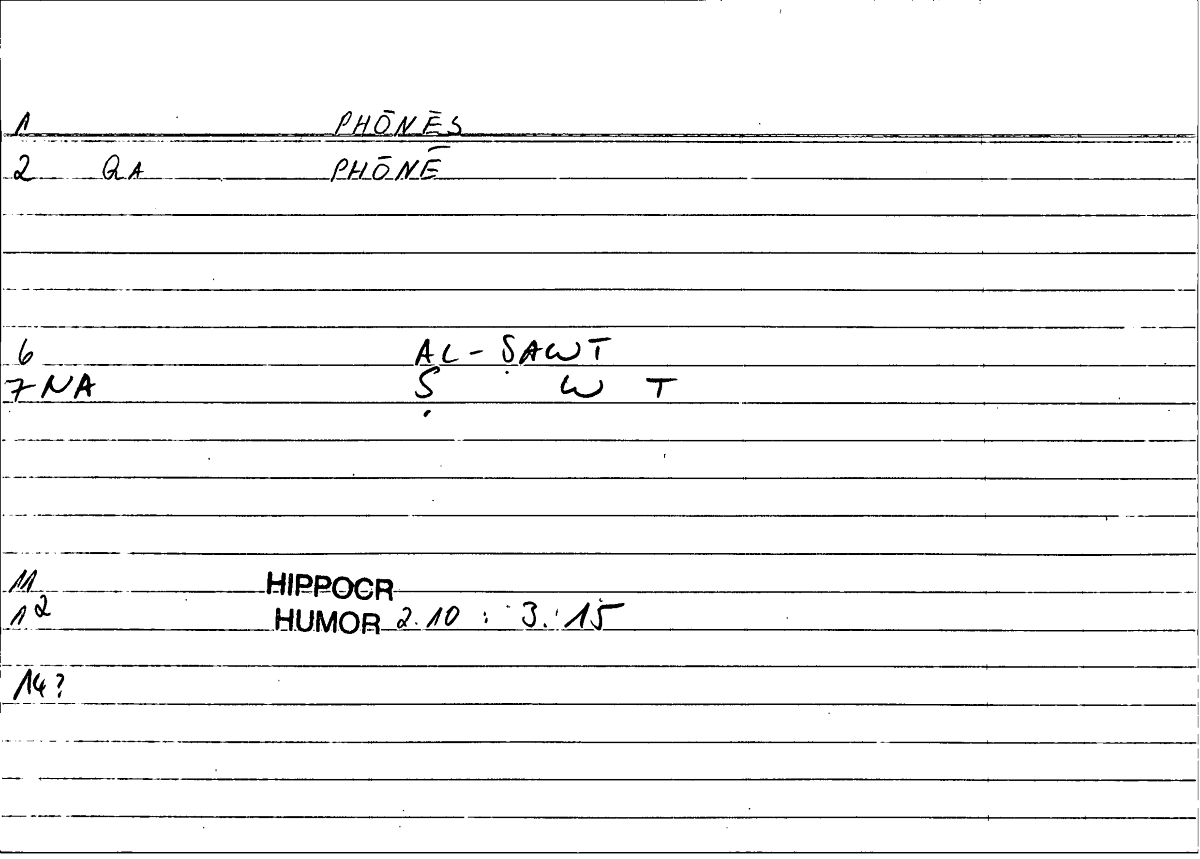 1 PHŌNĒS
2 QA PHŌNĒ
6 AL-ṢAWT
7 NA Ṣ W T
11 HIPPOCR
12 HUMOR 2.10 : 3.15
14?